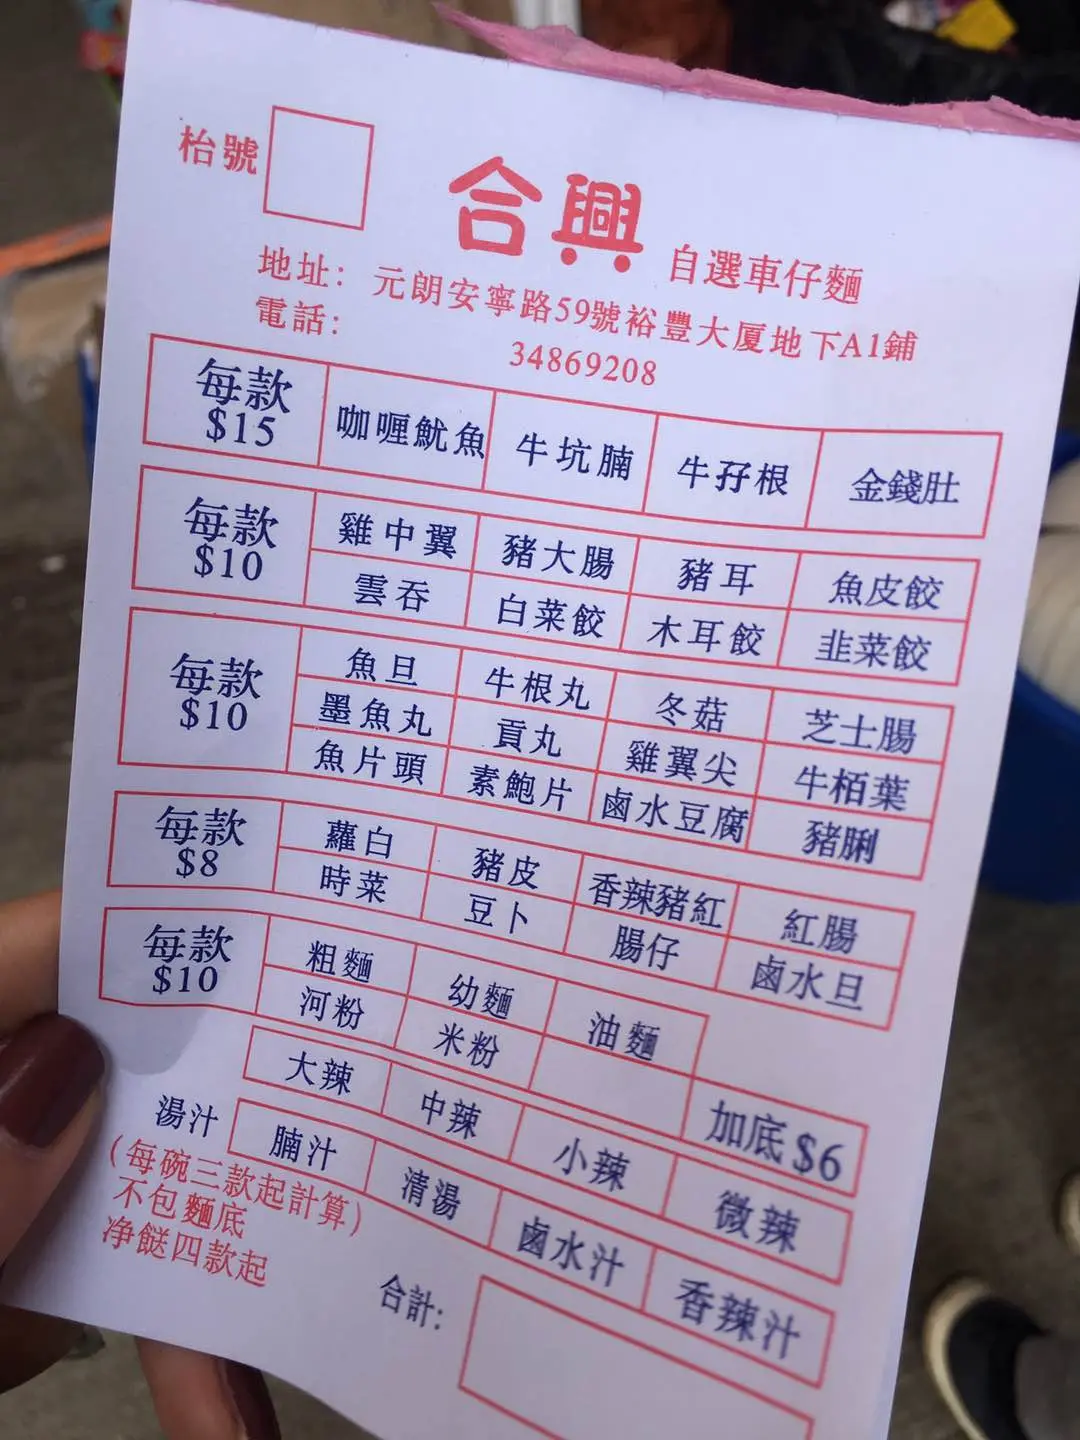 枱號
合興 自選車仔麵
地址：元朗安寧路59號裕豐大厦地下A1鋪
電話：34869208
每款 $15 咖喱魷魚 牛坑腩 牛孖根 金錢肚
每款 $10 雞中翼 豬大腸 豬耳 魚皮餃
雲吞 白菜餃 木耳餃 韭菜餃
每款 $10 魚旦 牛根丸 冬菇 芝士腸
墨魚丸 貢丸 雞翼尖 牛栢葉
魚片頭 素鮑片 鹵水豆腐 豬脷
每款 $8 蘿白 豬皮 香辣豬紅 紅腸
時菜 豆卜 腸仔 鹵水旦
每款 $10 粗麵 幼麵 油麵
河粉 米粉 加底 $6
大辣 中辣 小辣 微辣
湯汁 腩汁 清湯 鹵水汁 香辣汁
(每碗三款起計算)
不包麵底
净餸四款起
合計：